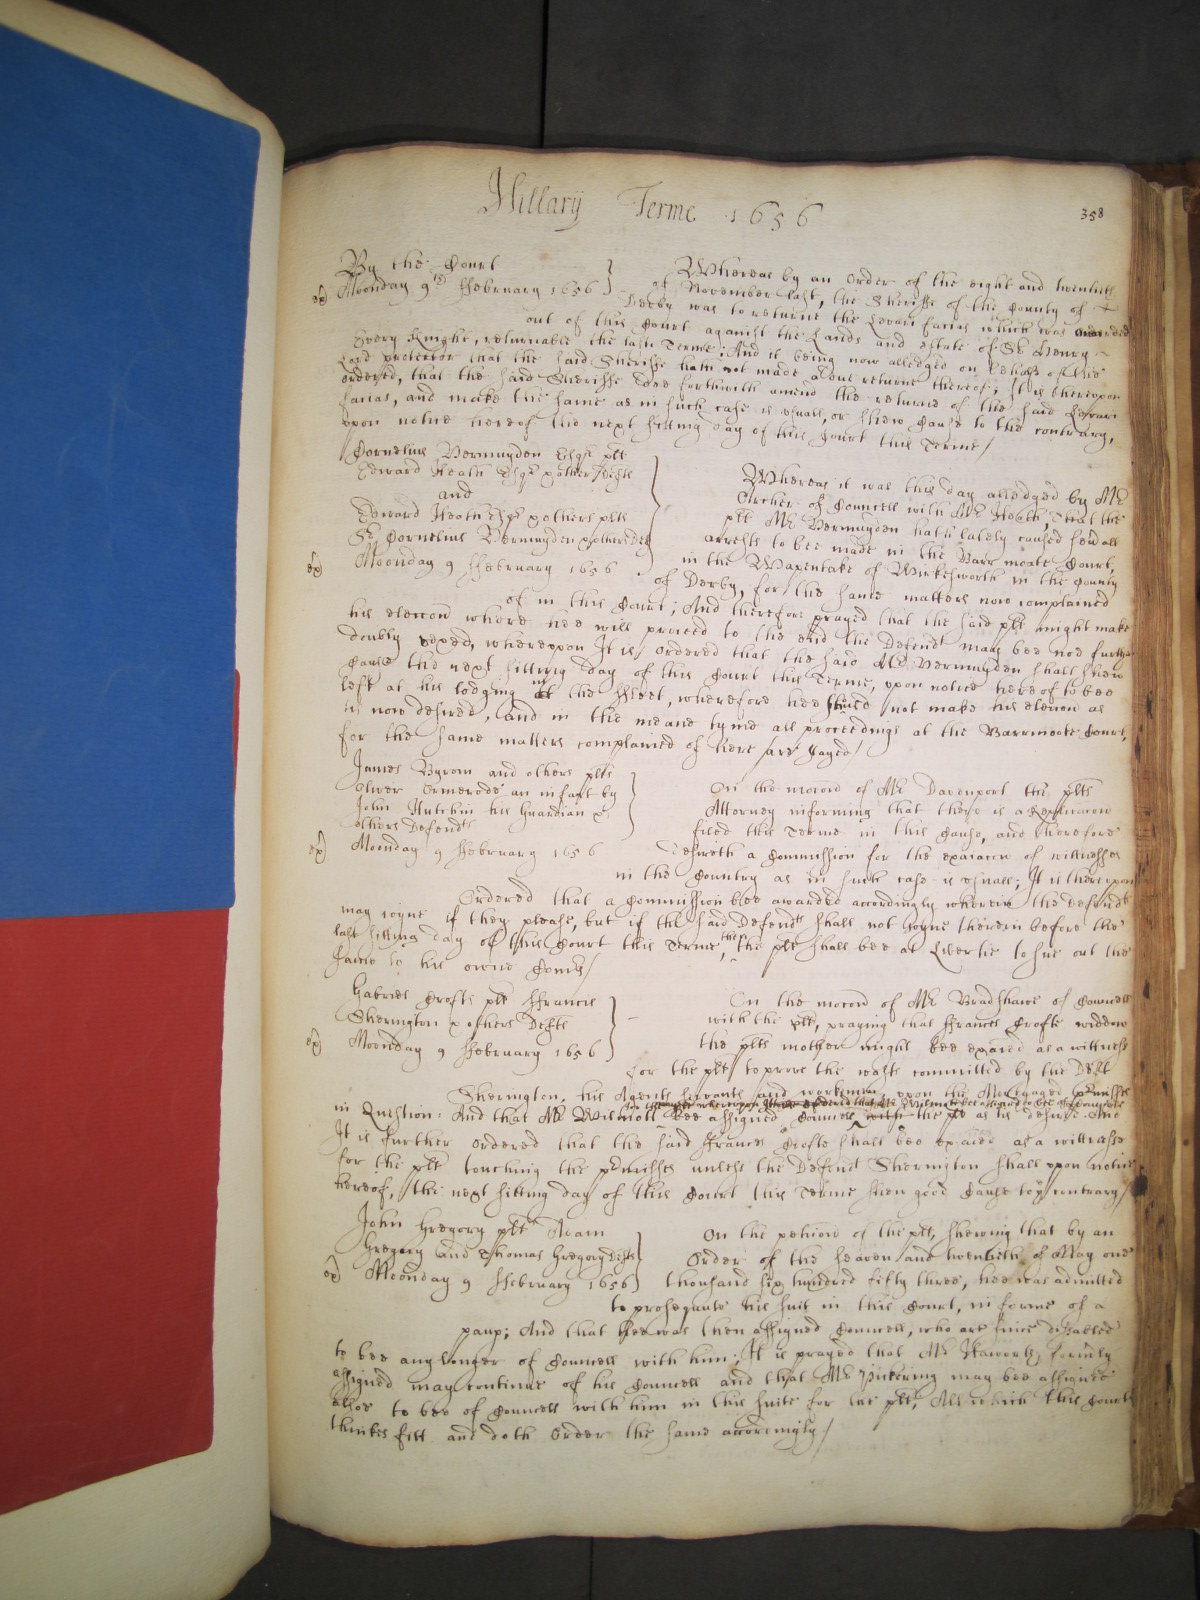 Hillary Terme 1656
358
By the Court
Moonday 9th ffebruary 1656
Whereas by an order of the eight and twentieth
of November last, the Sheriffe of the County of
Derby was to returne the Levari facias which was awarded
out of this Court against the Lands and estate of Sr Henry
Every Knight, returnable the last Terme; And it being now alledged on behalfe of the
Lord protector that the said Sheriffe hath not made a due returne thereof; It is thereupon
ordered, that the said Sheriffe doe forthwith amend the returne of the said Levari
facias, and make the same as in such case is usuall, or shew Cause to the contrary,
upon notice hereof the next sitting day of this Court this Terme/
Cornelius Vermuyden Esqr plt
Edward Heath Esqr & other defts
and
Edward Heath Esqr & others plts
Sr Cornelius Vermuyden & others Defts
Moonday 9 ffebruary 1656
Whereas it was this day alledged by Mr
Archer of Councell with Mr Heath, that the
plt Mr Vermuyden hath lately caused severall
arrests to bee made in the Barr moate Court,
in the Wapentake of Wirkesworth in the County
of Derby, for the same matters now complained
of in this Court; And therefore prayed that the said plt might make
his eleccon where hee will proceed to the end the Defendt may bee noe further
doubly vexed, whereupon It is ordered that the said Mr Vermuyden shall shew
Cause the next sitting day of this Court this Terme, upon notice hereof to bee
left at his lodging in the ffleet, wherefore hee should not make his eleccon as
is now desired, And in the meane tyme all proceedings at the Barrmoote Court,
for the same matters complained of here are stayed/
James Byrom and others plts
Oliver Ormerode an infant by
John Hutchin his Guardian &
others Defendts
Moonday 9 ffebruary 1656
On the mocon of Mr Davenport the plts
Attorney informing that there is a Replicacon
filed this Terme in this Cause, and therefore
desireth a Commission for the exaiacon of wittnesses
in the Country as in such case is usuall; It is thereupon
Ordered that a Commission bee awarded accordingly wherein the defendts
may ioyne if they please, but if the said Defendts shall not ioyne therein before the
last sitting day of this Court this Terme, then the plt shall bee at Libertie to sue out the
same to his owne Comrs/
Gabriel Crofts plt ffrancis
Sherington & others Defts
Moonday 9 ffebruary 1656
On the mocon of Mr Bradshawe of Councell
with the plt, praying that ffrances Crofte widdow
the plts mother might bee exaied as a wittnesse
for the plt to prove the wast committed by the Deft
Sherington, his Agents servants and workemen upon the Mortgaged prmisses
in Question: And that Mr Wilmott bee assigned Councell with the plt as is desired. And
It is further ordered that the said ffrances Crofte shall bee exaied as a wittnesse
for the plt touching the prmisses unless the Defendt Sherington shall upon notice
hereof, the next sitting day of this Court this Terme shew good Cause to ye contrary/
John Gregory plt Adam
Gregory and Thomas Gregory Defts
Moonday 9 ffebruary 1656
On the peticon of the plt, shewing that by an
Order of the seaven and twentieth of May one
thousand six hundred fifty three, hee was admitted
to prosequute his suit in this Court, in forme of a
paup; And that hee was then assigned Councell, who are since disabled
to bee any longer of Councell with him; It is prayed that Mr Haworth formerly
assigned may continue of his Councell and that Mr Pickering may bee assigned
alsoe to bee of Councell with him in this suite for the plt, All which this Court
thinkes fitt and doth Order the same accordingly/